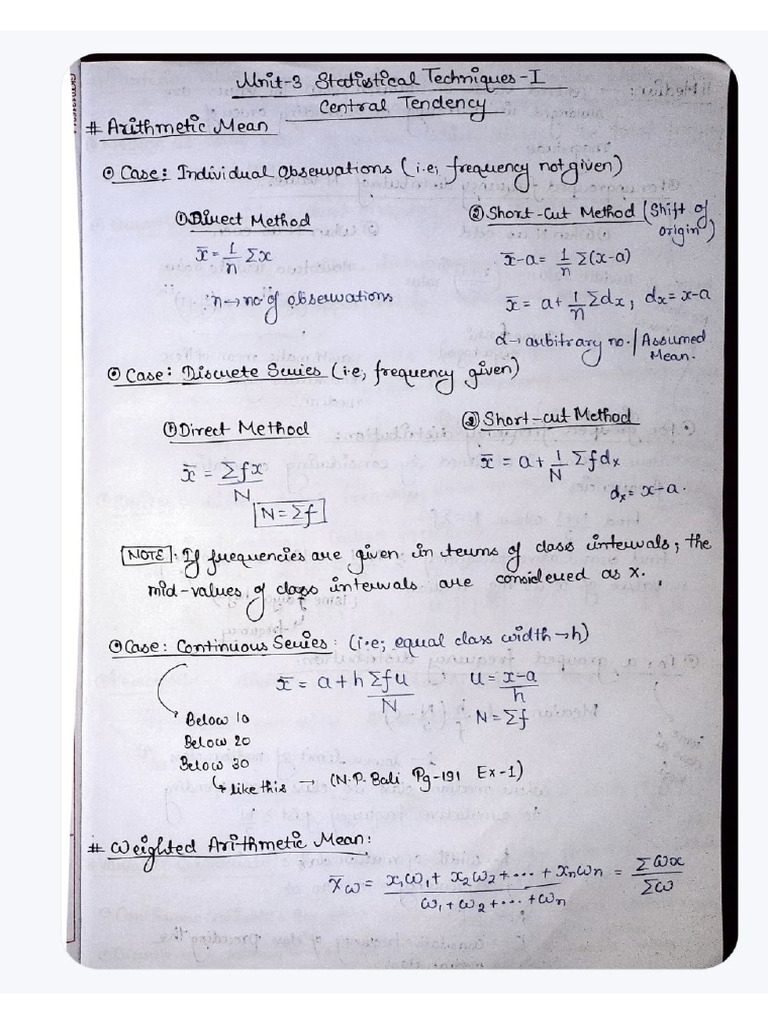 Unit-3 Statistical Techniques-I
Central Tendency
# Arithmetic Mean
⊙ Case: Individual Observations (i.e; frequency not given)
① Direct Method
x̄ = 1/n Σx
n → no of observations
② Short-cut Method (Shift of origin)
x̄-a = 1/n Σ(x-a)
x̄ = a + 1/n Σdₓ, dₓ = x-a
a → arbitrary no./Assumed
Mean.
⊙ Case: Discrete Series (i.e; frequency given)
① Direct Method
x̄ = Σfx/N
N = Σf
② Short-cut Method
x̄ = a + 1/N Σfdₓ
dₓ = x-a.
NOTE: If frequencies are given in terms of class intervals, the
mid-values of class intervals are considered as x.
⊙ Case: Continuous Series: (i.e; equal class width → h)
x̄ = a + h Σfu/N
u = x-a/h
N = Σf
Below 10
Below 20
Below 30
↳ like this → (N.P. Bali Pg-191 Ex-1)
# Weighted Arithmetic Mean:
x̄ω = x₁ω₁ + x₂ω₂ + ... + xₙωₙ / ω₁ + ω₂ + ... + ωₙ = Σωx/Σω